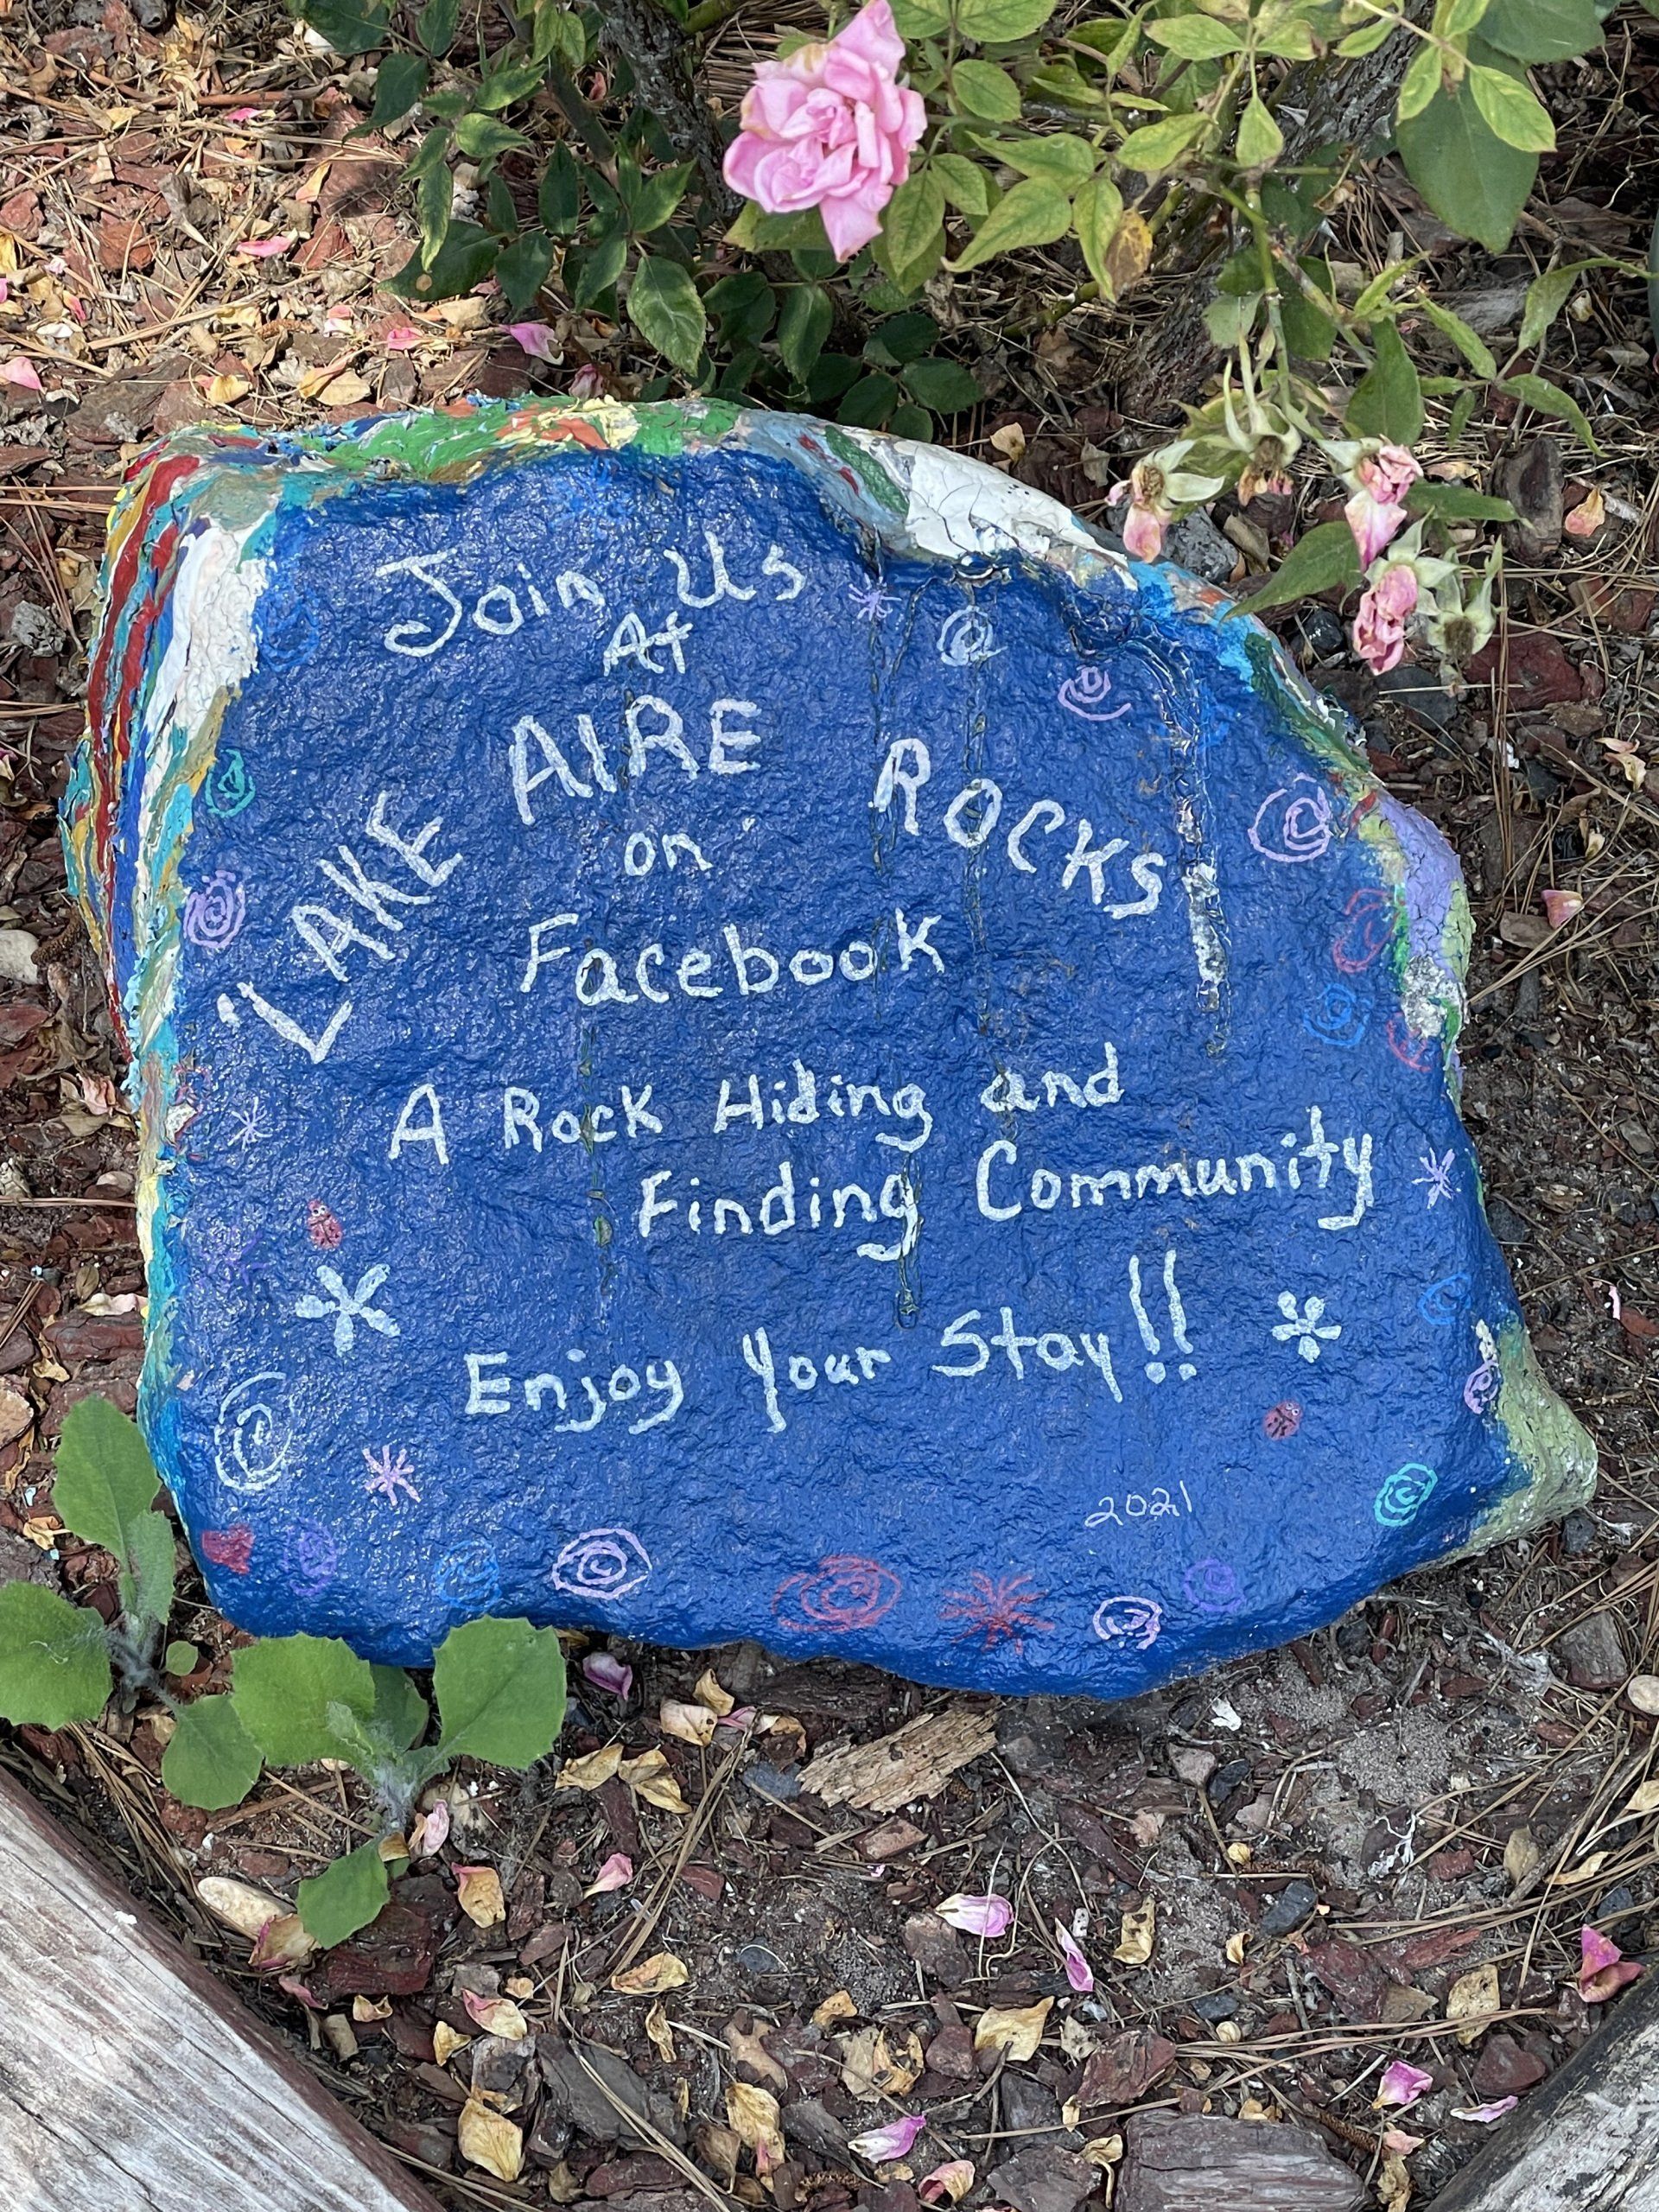 Join Us
At
"LAKE AIRE ROCKS"
on
Facebook
A Rock Hiding and
Finding Community
Enjoy your Stay!!
2021